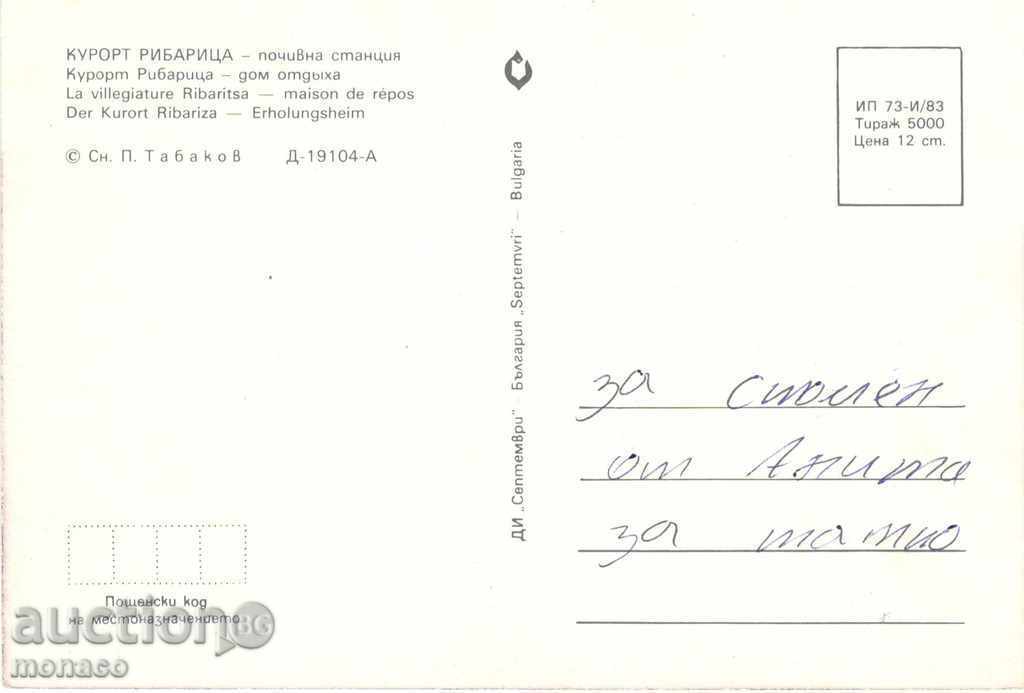 КУРОРТ РИБАРИЦА – почивна станция
Курорт Рибарица – дом отдыха
La villegiature Ribaritsa — maison de répos
Der Kurort Ribariza — Erholungsheim
© Сн. П. Табаков Д-19104-А
ДИ „Септември" – България „Septemvri" – Bulgaria
ИП 73-И/83
Тираж 5000
Цена 12 ст.
за спомен
от Анита
за татко
Пощенски код
на местоназначението
auction BG
monaco